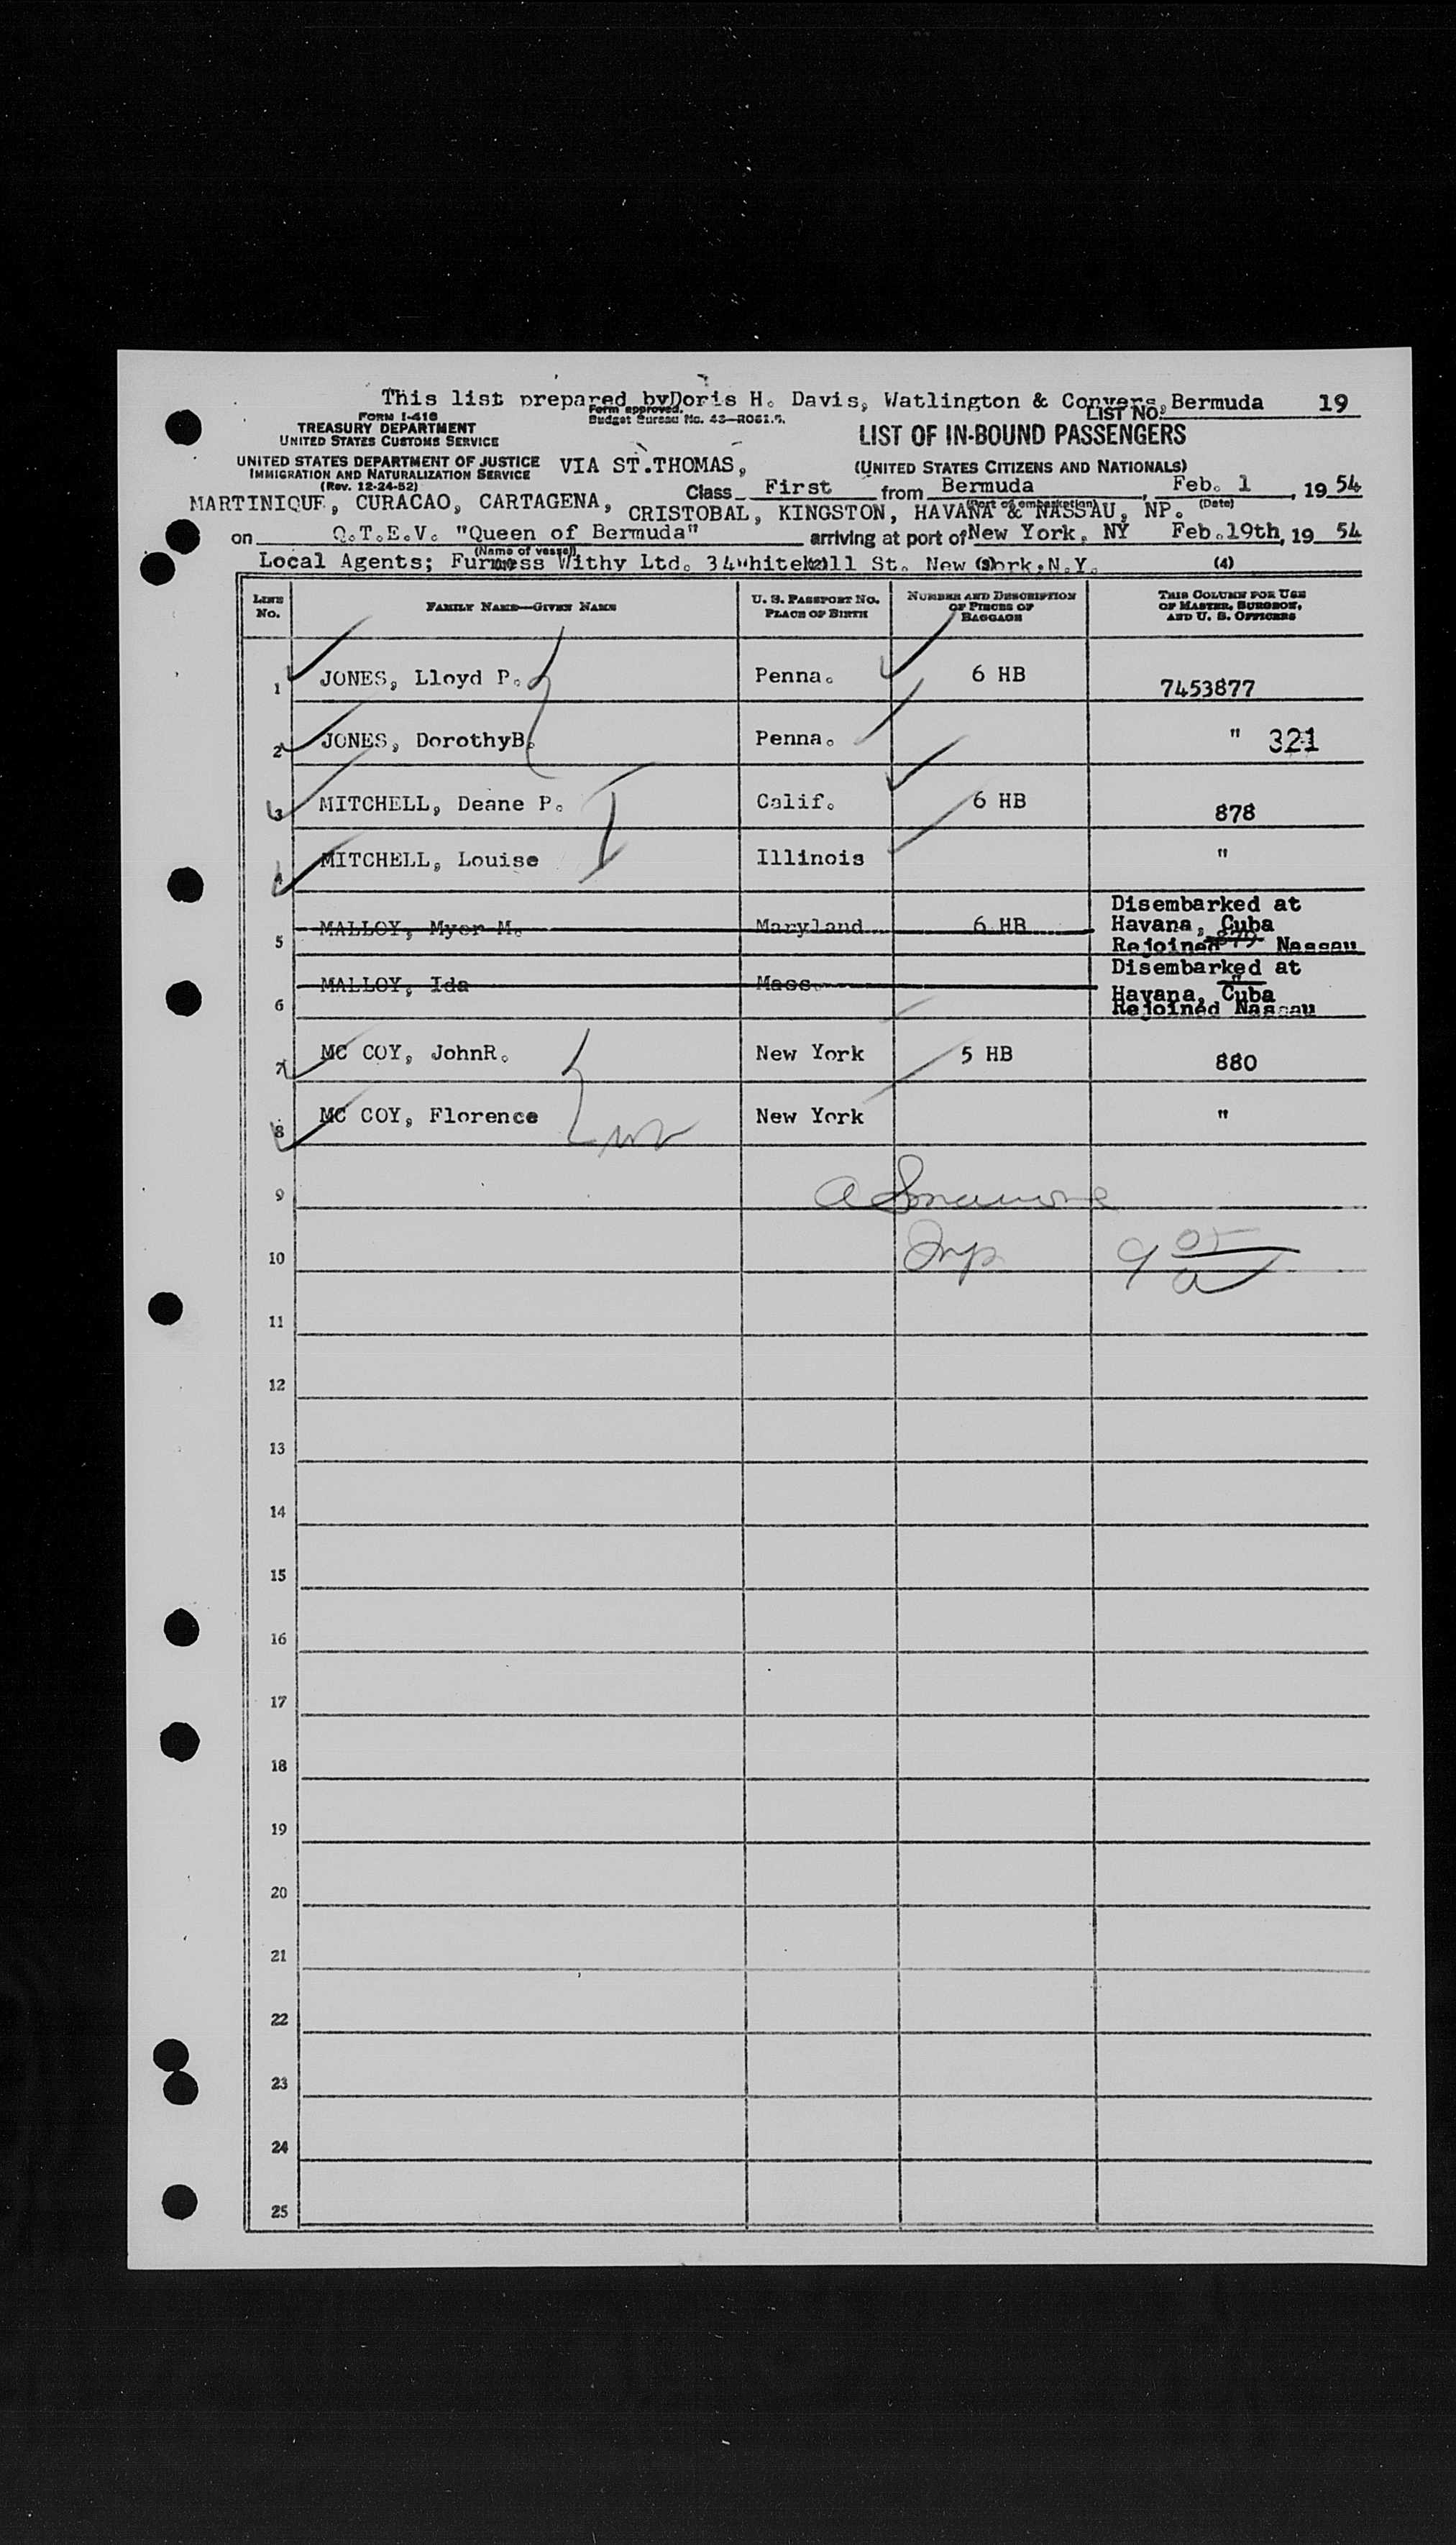 This list prepared byDoris H. Davis, Watlington & Conyers, Bermuda 19
FORM I-416
Form approved.
LIST NO.
TREASURY DEPARTMENT
Budget Bureau No. 43-R061.5.
UNITED STATES CUSTOMS SERVICE
LIST OF IN-BOUND PASSENGERS
UNITED STATES DEPARTMENT OF JUSTICE
VIA ST.THOMAS,
(UNITED STATES CITIZENS AND NATIONALS)
IMMIGRATION AND NATURALIZATION SERVICE
(Rev. 12-24-52)
Class First from Bermuda, Feb. 1, 19 54
MARTINIQUE, CURACAO, CARTAGENA, CRISTOBAL, KINGSTON, HAVANA & NASSAU, NP.
(Port of embarkation) (Date)
on Q.T.E.V. "Queen of Bermuda" arriving at port of New York, NY Feb.19th, 19 54
(Name of vessel)
Local Agents; Furness Withy Ltd. 34 Whitehall St. New York, N.Y.
(2) (3) (4)
LINE No. FAMILY NAME—GIVEN NAME U. S. PASSPORT NO. PLACE OF BIRTH NUMBER AND DESCRIPTION OF PIECES OF BAGGAGE THIS COLUMN FOR USE OF MASTER, SURGEON, AND U. S. OFFICERS
1 JONES, Lloyd P. Penna. 6 HB 7453877
2 JONES, DorothyB. Penna. " 321
3 MITCHELL, Deane P. Calif. 6 HB 878
4 MITCHELL, Louise Illinois "
5 MALLOY, Myer M. Maryland 6 HB 879 Disembarked at Havana, Cuba Rejoined Nassau
6 MALLOY, Ida Mass. " Disembarked at Havana, Cuba Rejoined Nassau
7 MC COY, JohnR. New York 5 HB 880
8 MC COY, Florence New York "
9
10 Insp 9 05 a
11
12
13
14
15
16
17
18
19
20
21
22
23
24
25